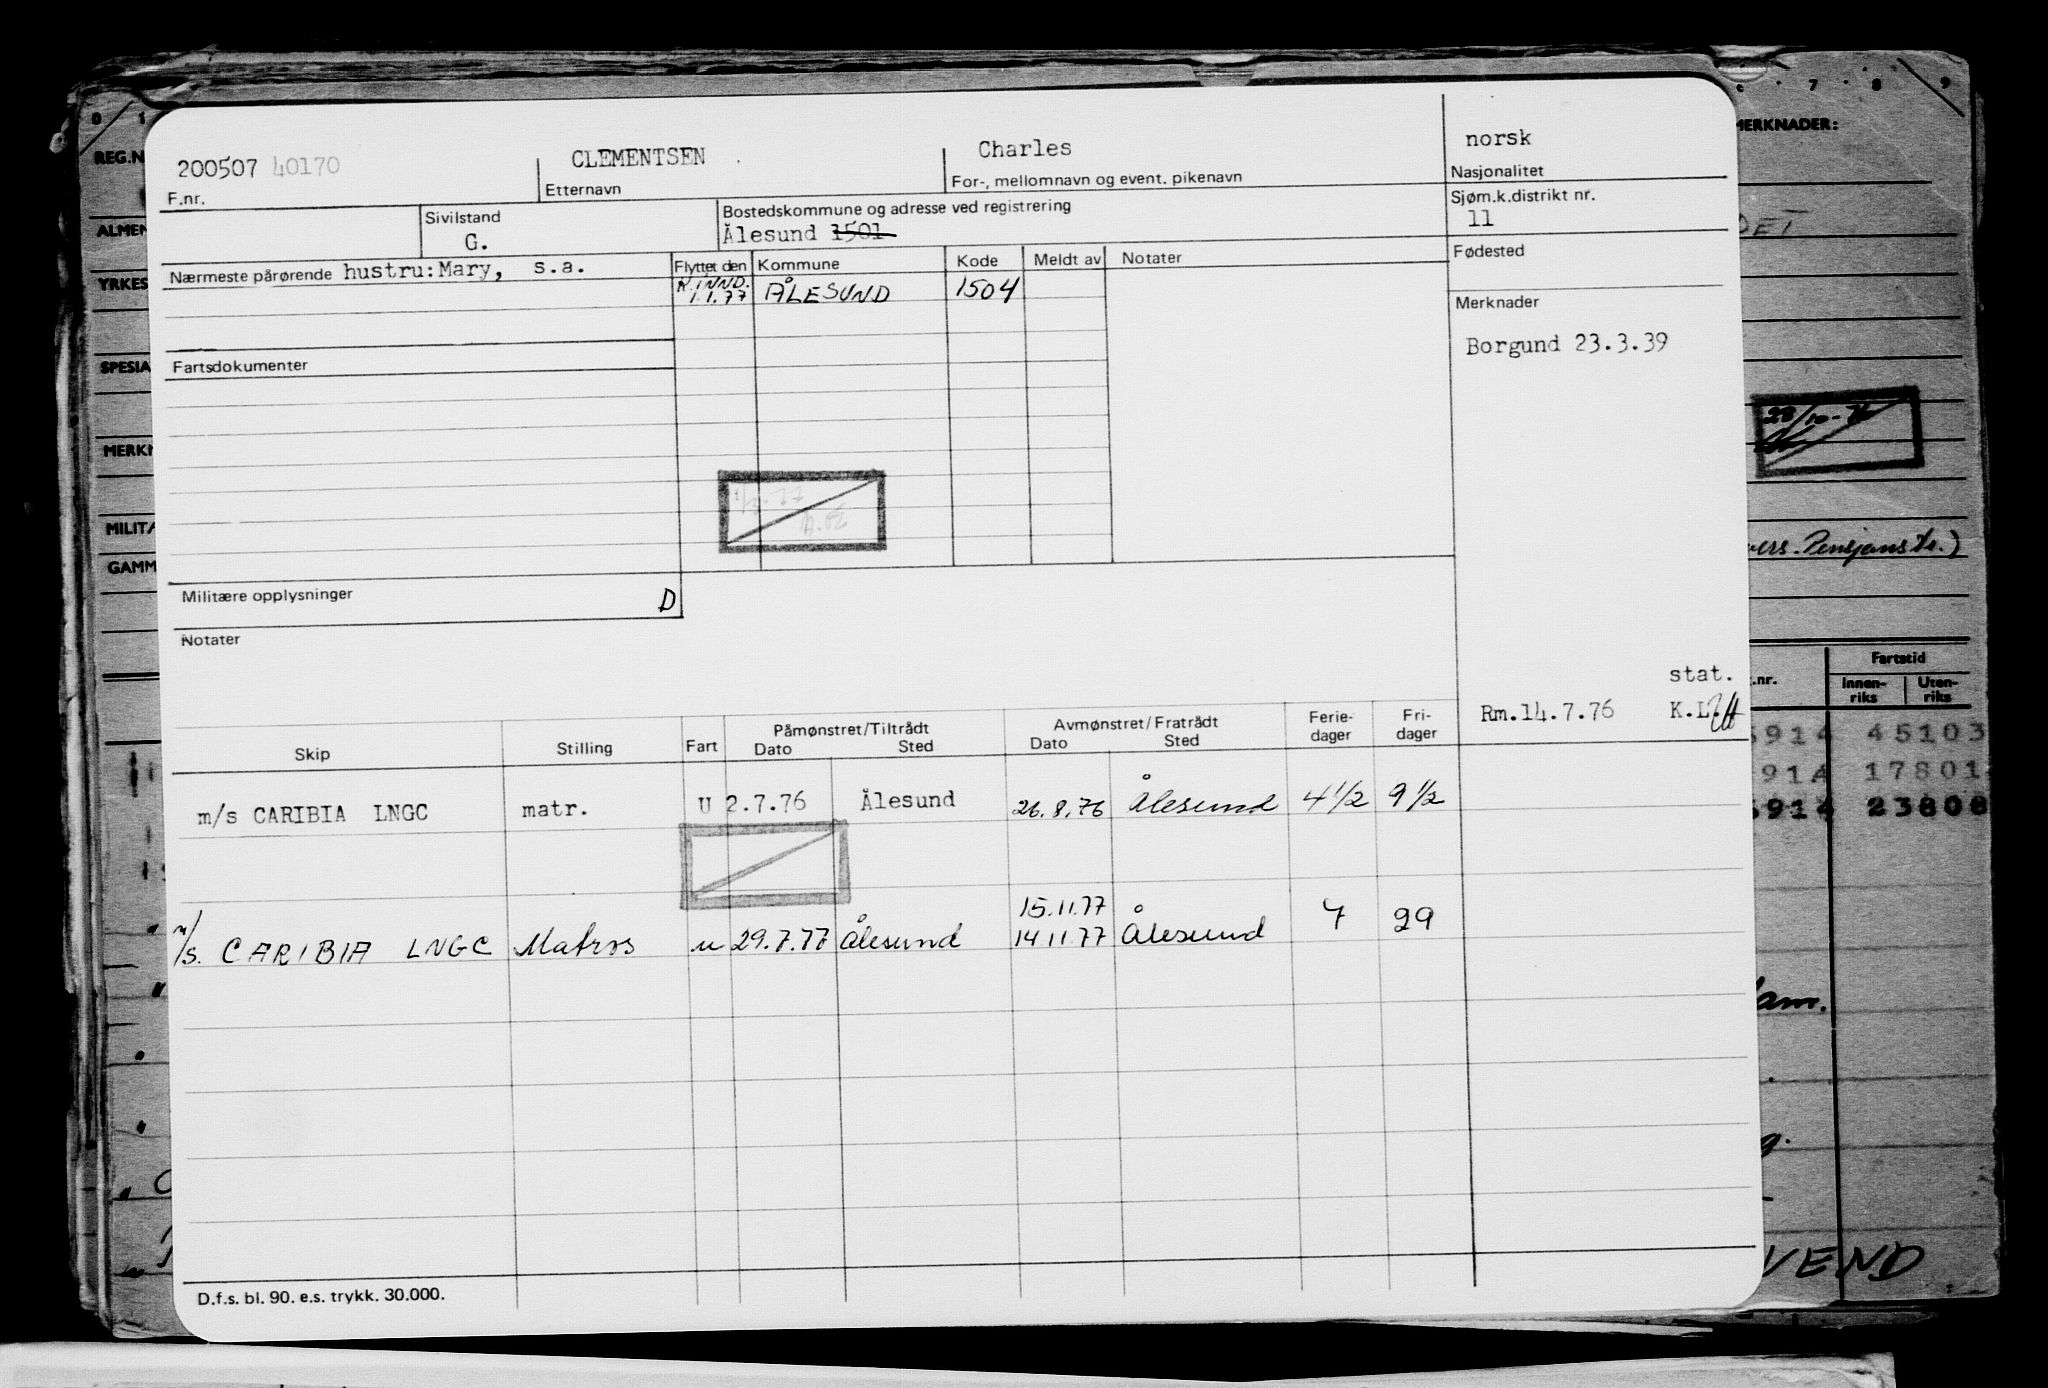 0 1 7 8 9
REG.N MERKNADER:
200507 40170 CLEMENTSEN Charles norsk
F.nr. Etternavn For-, mellomnavn og event. pikenavn Nasjonalitet
Sivilstand Bostedskommune og adresse ved registrering Sjøm.k.distrikt nr.
ALMEN G. Ålesund 1501 11 DET
Nærmeste pårørende hustru:Mary, s.a. Flyttet den Kommune Kode Meldt av Notater Fødested
YRKES K.INND.
1.1.77 ÅLESUND 1504 Merknader
SPESIA Fartsdokumenter Borgund 23.3.39
28/10-76
MERKN
MILITÆ
GAMM
Pensjons
Militære opplysninger D
Notater
stat.
Rm.14.7.76 K.L.
.nr. Fartstid
Innen-riks Uten-riks
Skip Stilling Fart Påmønstret/Tiltrådt Avmønstret/Fratrådt Ferie-dager Fri-dager
Dato Sted Dato Sted
914 45103
914 17801
914 23808
m/s CARIBIA LNGC matr. U 2.7.76 Ålesund 26.8.76 Ålesund 4 1/2 9 1/2
15.11.77
m/s. CARIBIA LNGC Matros u 29.7.77 Ålesund 14.11.77 Ålesund 7 29
am.
VEND
D.f.s. bl. 90. e.s. trykk. 30.000.